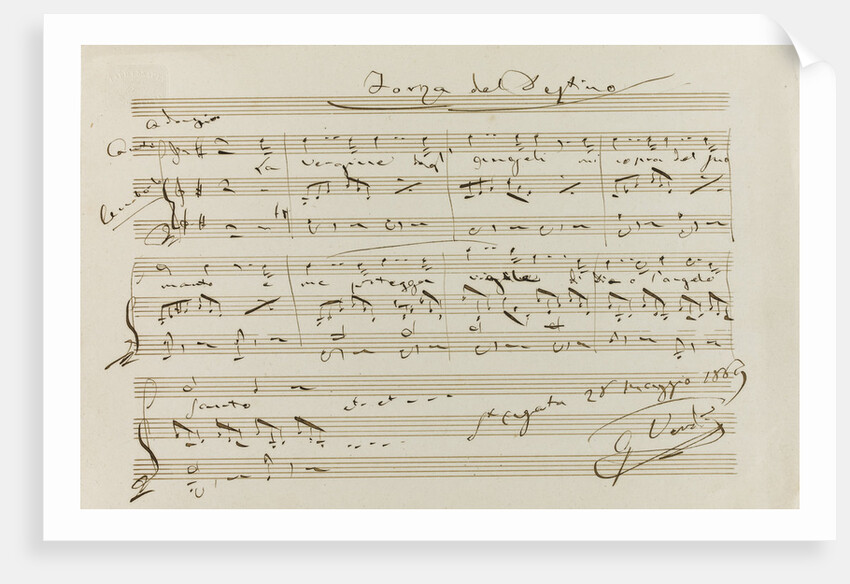 Forza del Destino
Adagio
Canto
La vergine degl' angeli mi copra del suo
Cembalo
manto e me protegga vigile di Dio l'angelo
santo et et - - - -
St. Agata 28 Maggio 1869
G Verdi